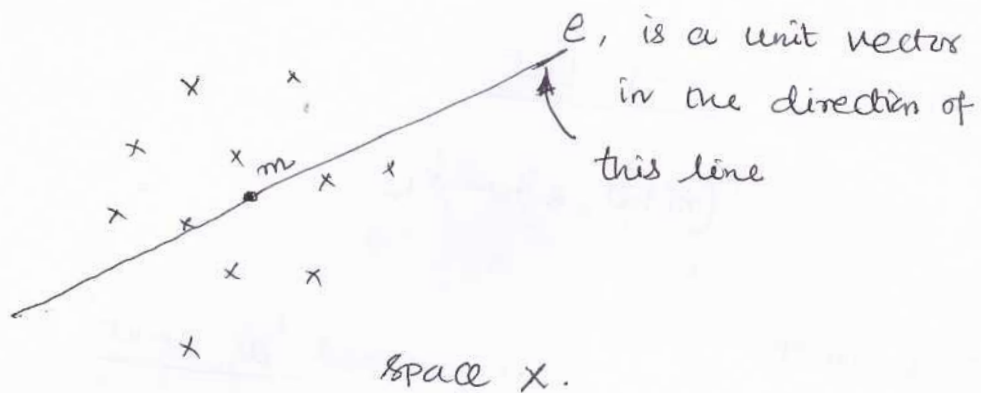 e, is a unit vector
in the direction of
this line
m
space X.